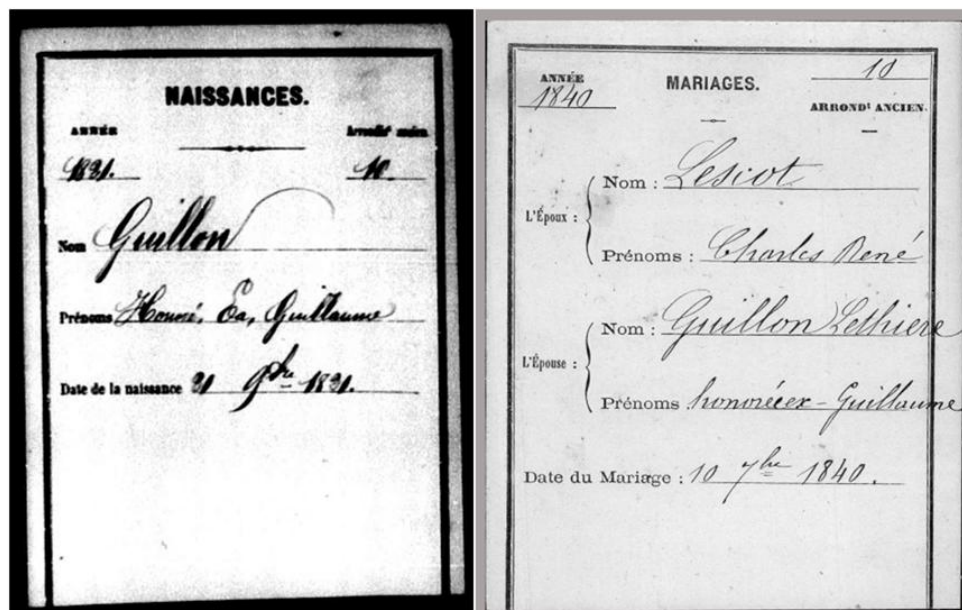 NAISSANCES.
ANNÉE
Arrondt ancien
1821.
10.
Nom Guillon
Prénoms Guillaume
Date de la naissance 21 9bre 1821.
ANNÉE
1840
MARIAGES.
10
ARRONDt ANCIEN.
L'Époux :
Nom : Lescot
Prénoms : Charles René
L'Épouse :
Nom : Guillon Lethiere
Prénoms : honoréeex - Guillaume
Date du Mariage : 10 7bre 1840.